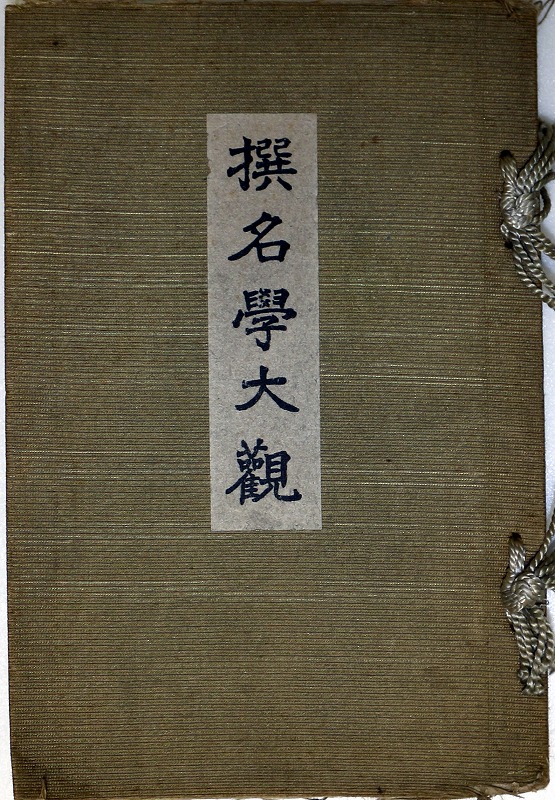 撰名學大觀